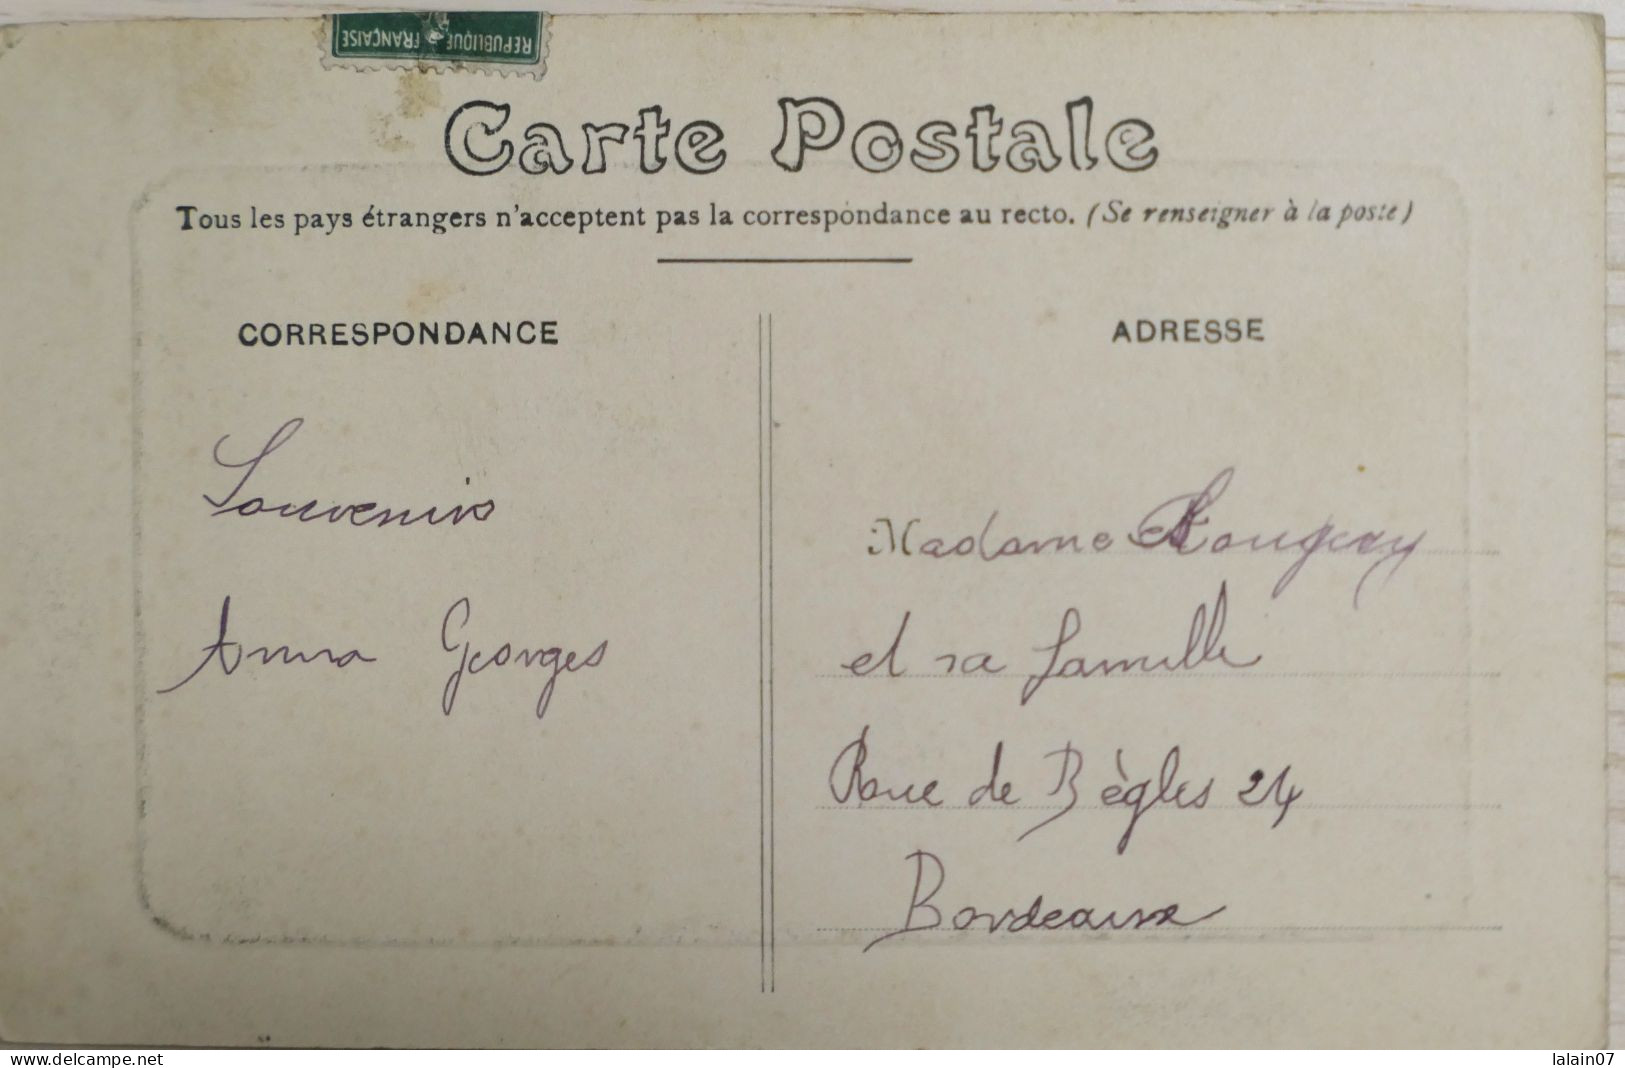 REPUBLIQUE FRANÇAISE
Carte Postale
Tous les pays étrangers n'acceptent pas la correspondance au recto. (Se renseigner à la poste)
CORRESPONDANCE
ADRESSE
Souvenirs
Anna Georges
Madame
et sa famille
Rue de Bègles 24
Bordeaux
www.delcampe.net
lalain07